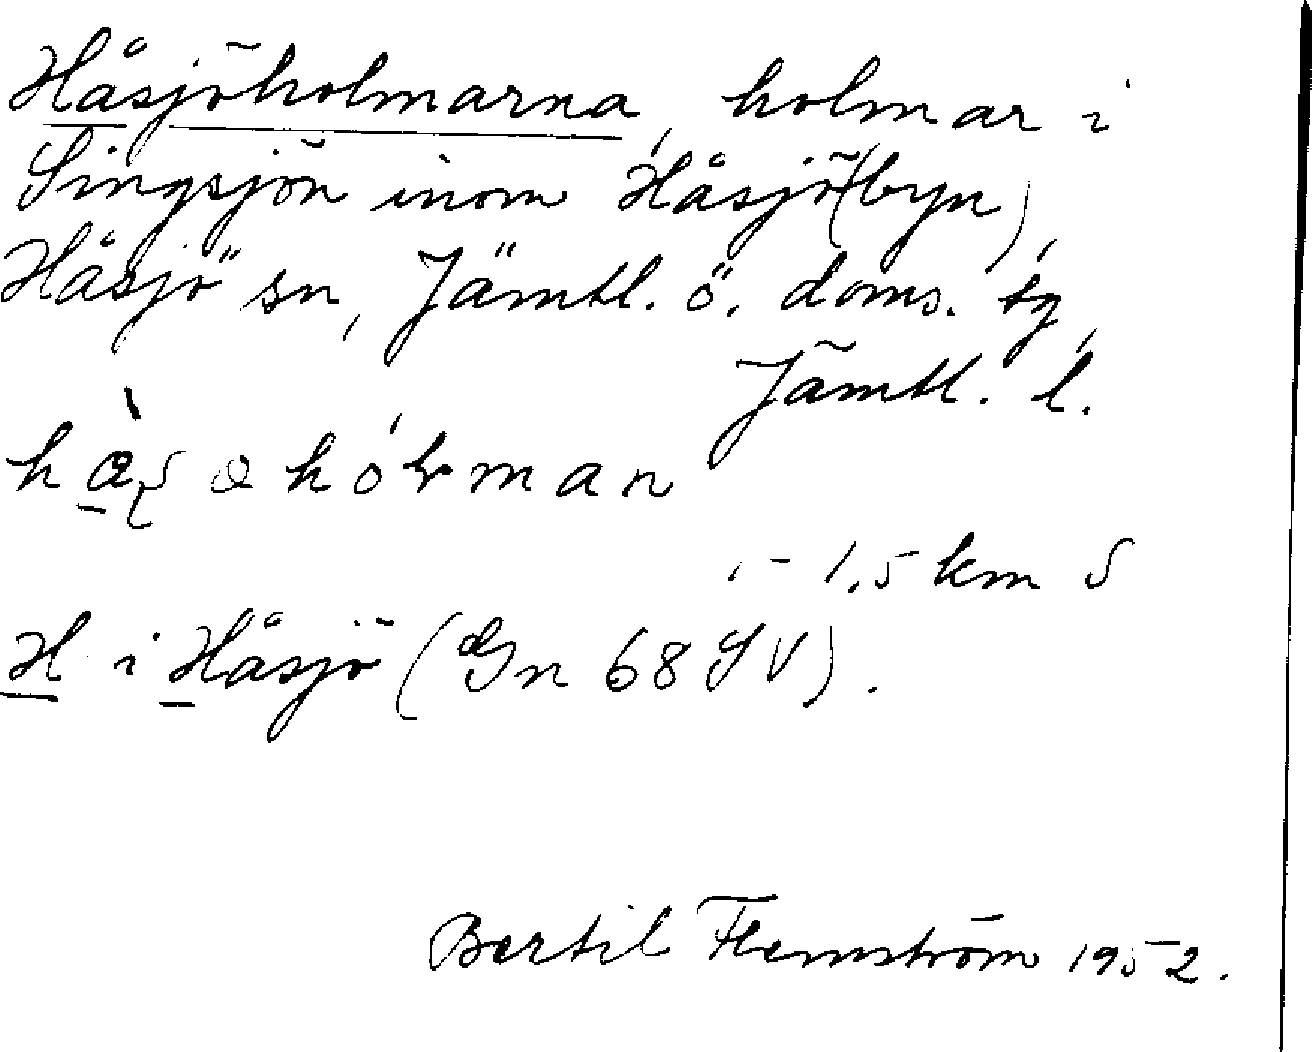 Håsjöholmarna, holmar i
Singsjön inom Håsjö (byn),
Håsjö sn, Jämtl. ö. doms. tg,
Jämtl. l.
.- 1,5 km S
H i Håsjö (Gn 68 SV).
Bertil Flemström 1952.